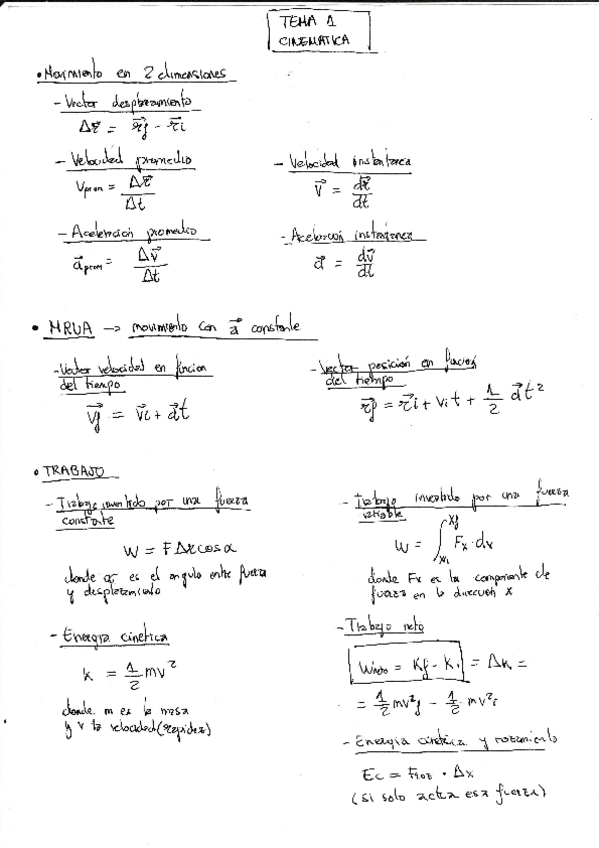 TEMA 1
CINEMATICA
• Movimiento en 2 dimensiones
- Vector desplazamiento
Δr⃗ = r⃗f - r⃗i
- Velocidad promedio
Vprom = Δr⃗ / Δt
- Velocidad instantanea
v⃗ = dr⃗ / dt
- Aceleración promedio
a⃗prom = Δv⃗ / Δt
- Aceleración instantánea
a⃗ = dv⃗ / dt
• MRUA → movimiento con a⃗ constante
- Vector velocidad en funcion
del tiempo
v⃗f = v⃗i + a⃗t
- Vector posición en funcion
del tiempo
r⃗f = r⃗i + vi t + 1/2 a⃗t²
• TRABAJO
- Trabajo invertido por una fuerza
constante
W = FΔr cosα
donde α es el angulo entre fuerza
y desplazamiento
- Trabajo invertido por una fuerza
variable
W = ∫xi xf Fx · dx
donde Fx es la componente de
fuerza en la dirección X
- Energia cinética
K = 1/2 mv²
donde m es la masa
y v la velocidad (rapidez)
- Trabajo neto
Wneto = Kf - Ki = ΔK =
= 1/2 mv²f - 1/2 mv²i
- Energia cinética y rozamiento
Ec = Froz · Δx
(si solo actua esa fuerza)